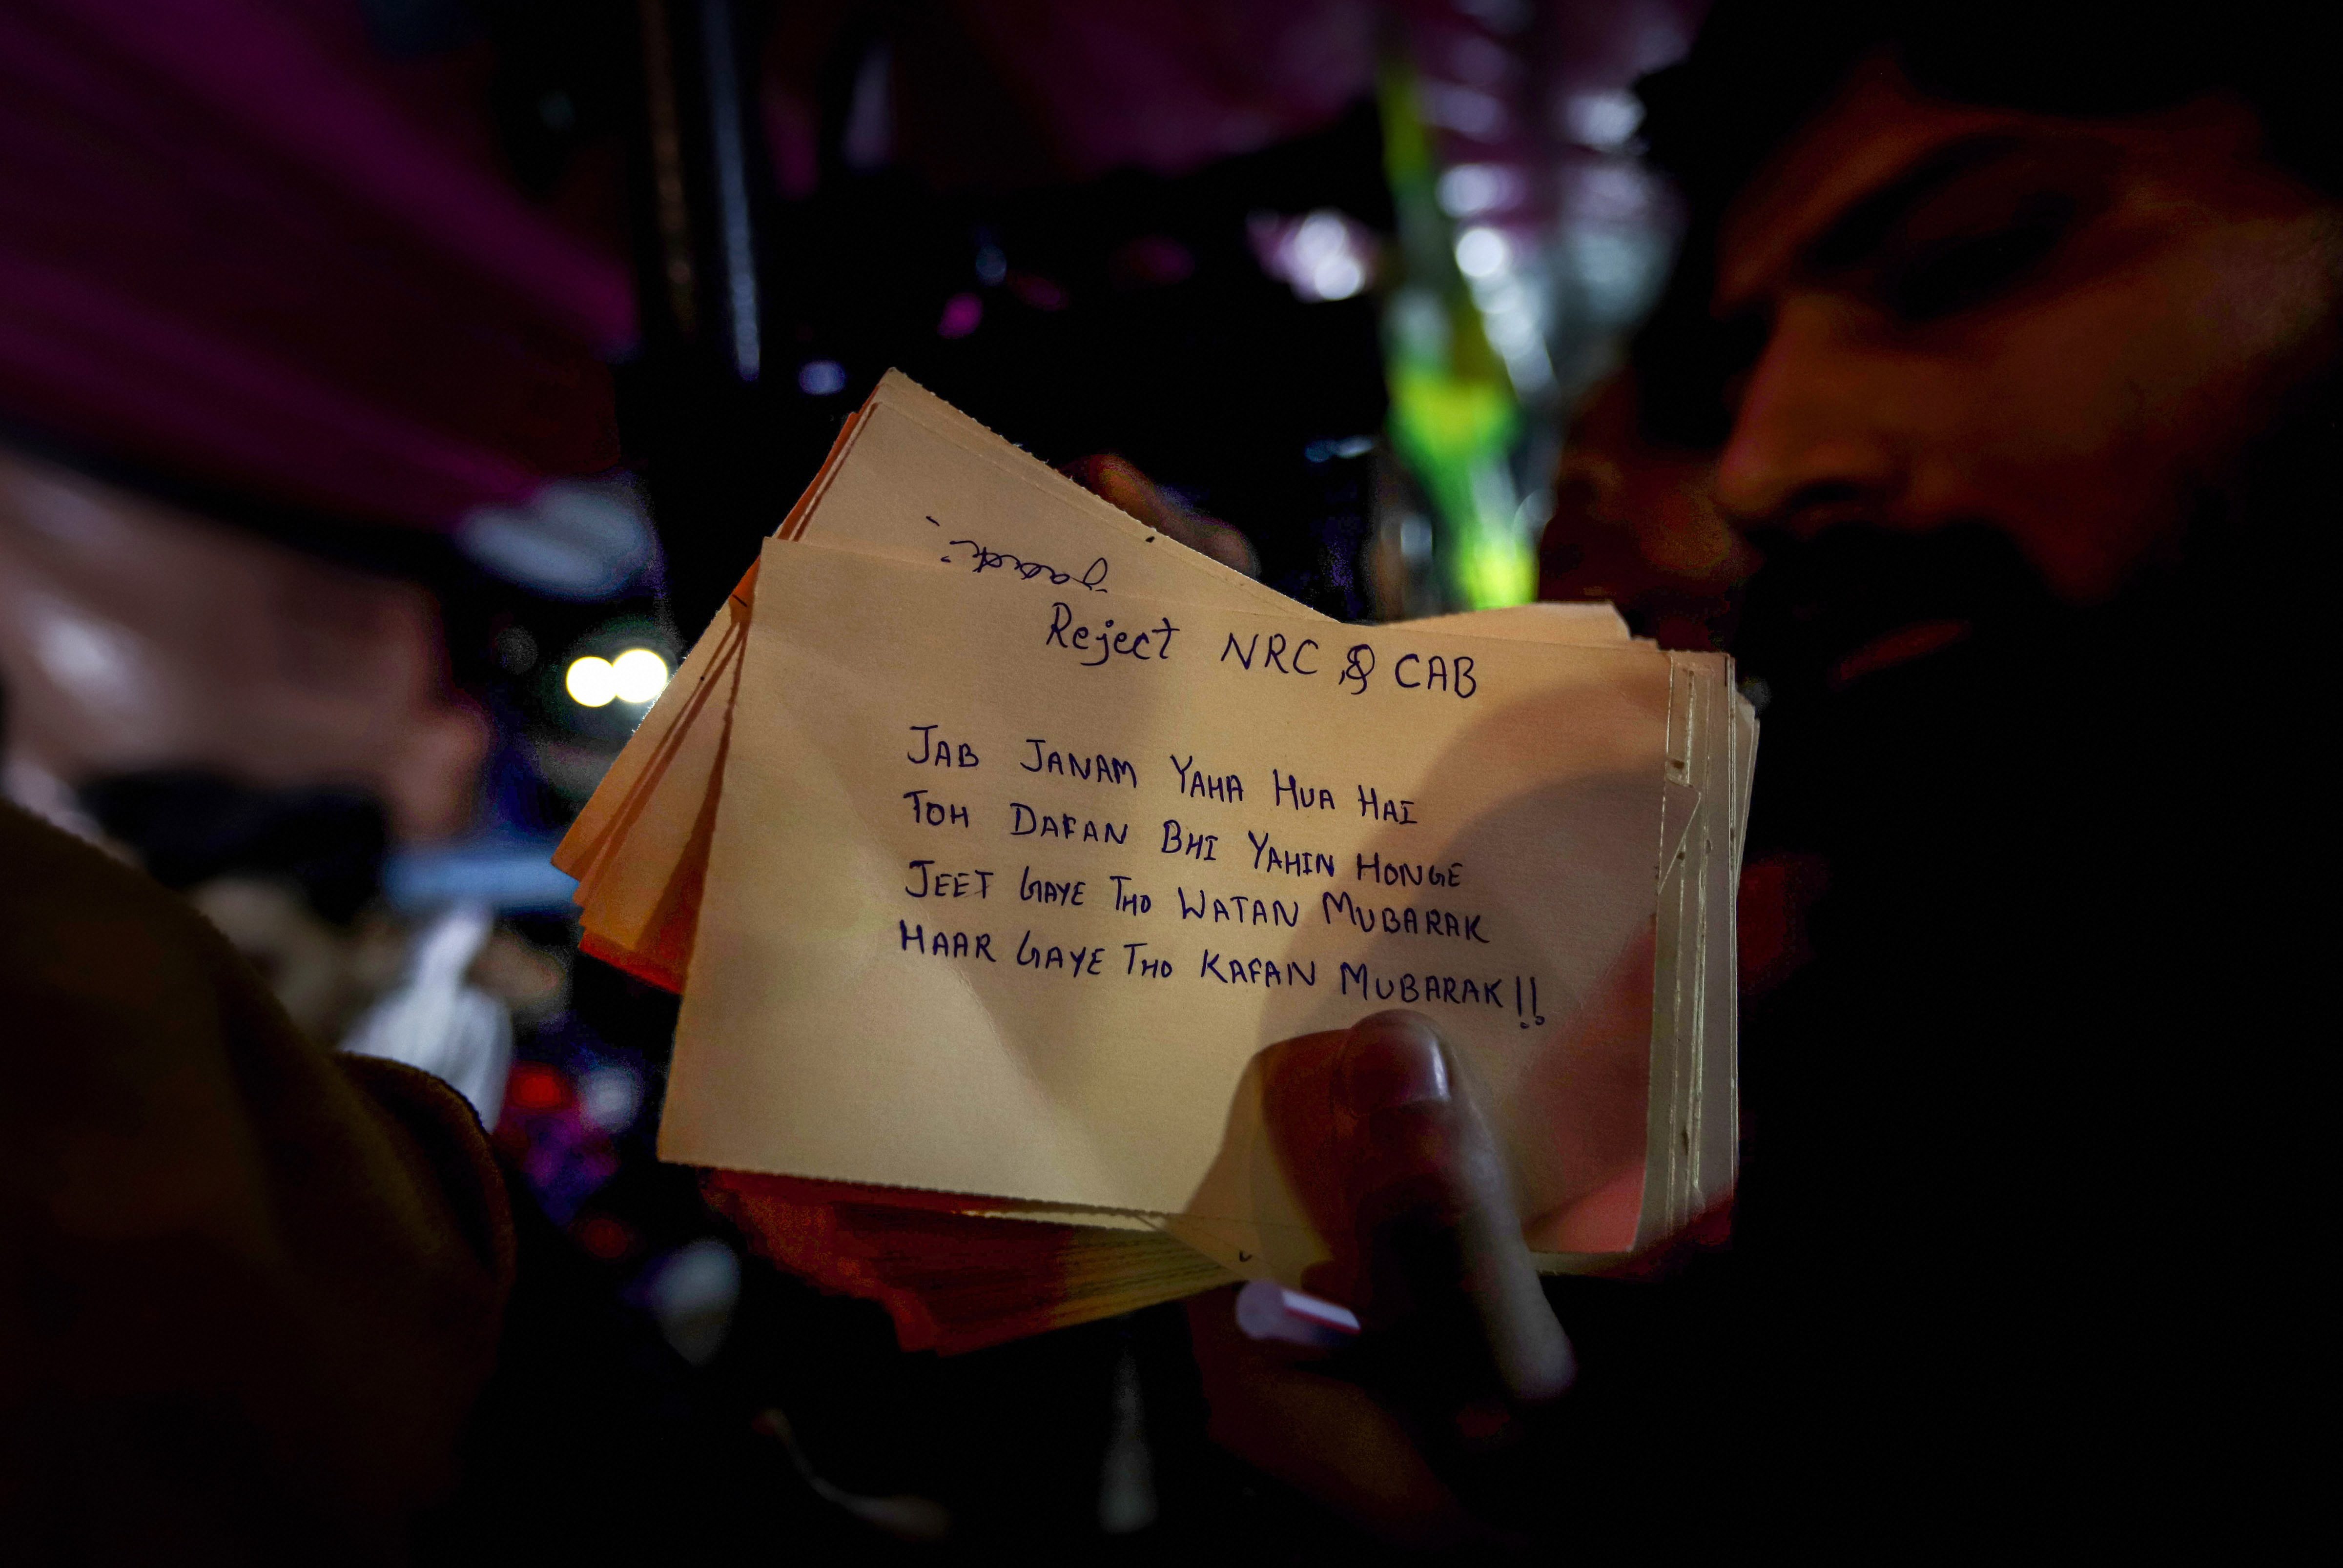 Reject NRC & CAB
JAB JANAM YAHA HUA HAI
TOH DAFAN BHI YAHIN HONGE
JEET GAYE THO WATAN MUBARAK
HAAR GAYE THO KAFAN MUBARAK!!